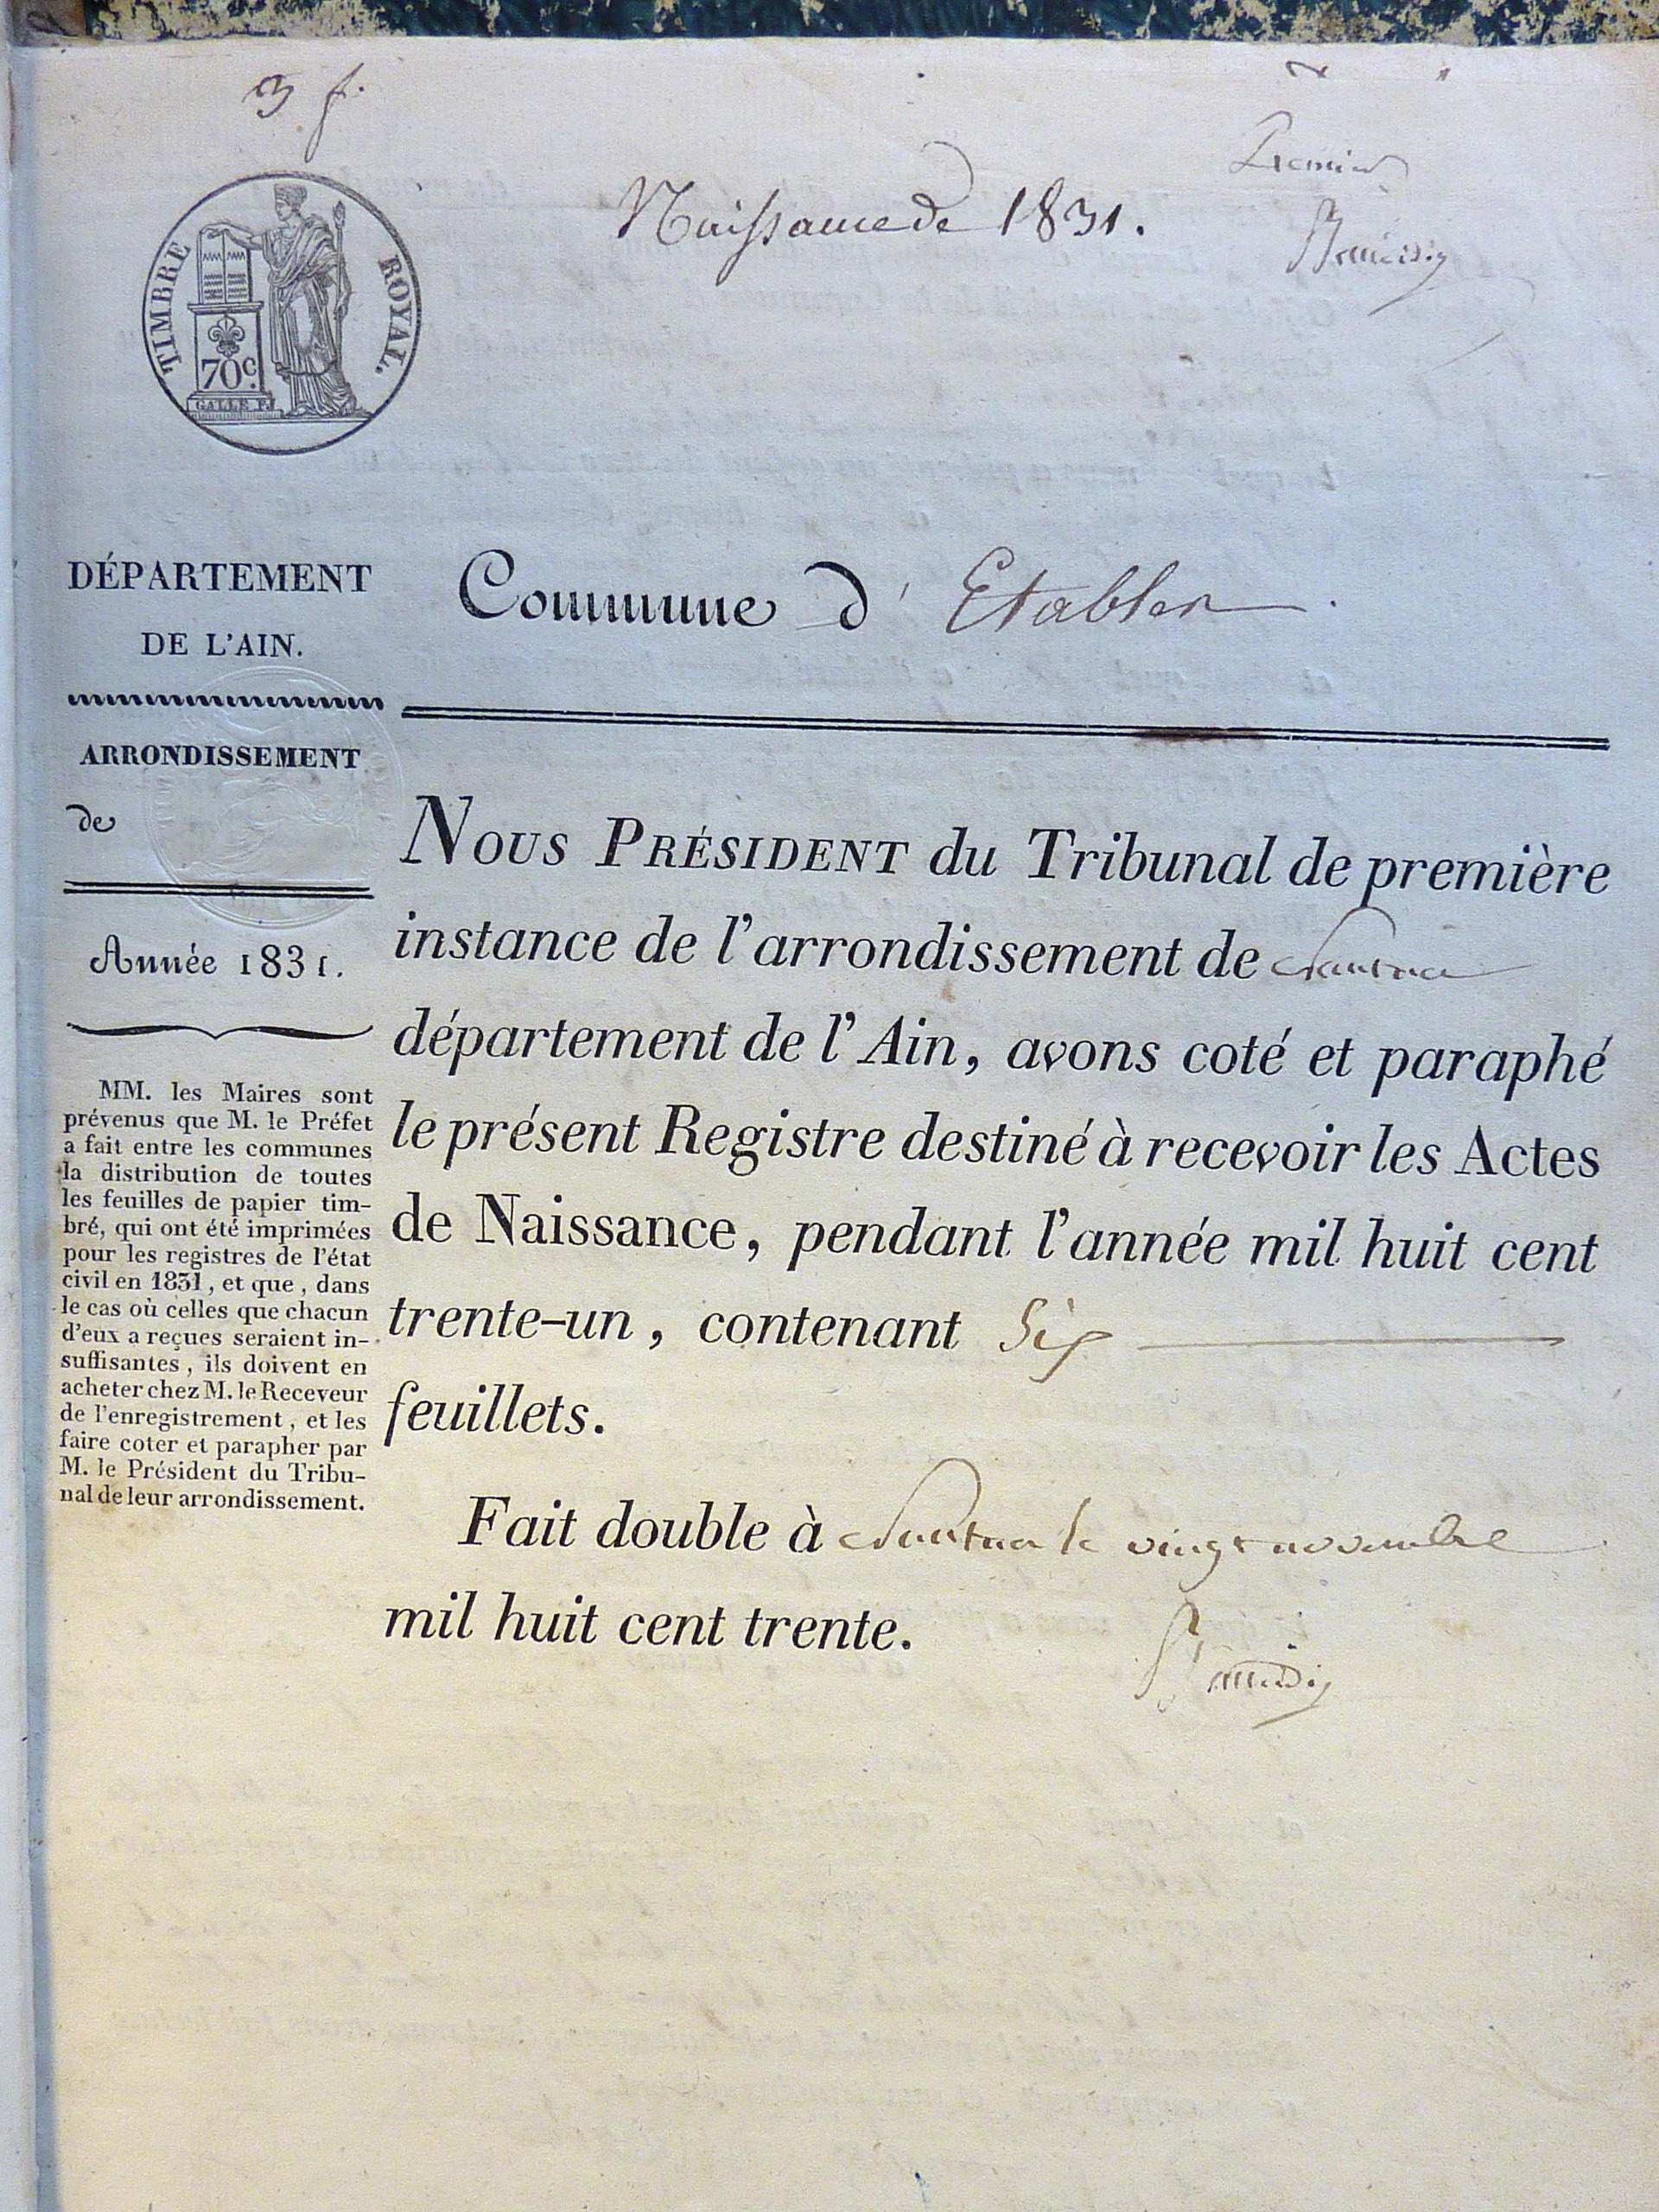 3 f.
Premier
Naissance de 1831.
TIMBRE ROYAL.
70c.
GALLE F.
DÉPARTEMENT
DE L'AIN.
Commune d' Etables
ARRONDISSEMENT
de
Année 1831.
MM. les Maires sont
prévenus que M. le Préfet
a fait entre les communes
la distribution de toutes
les feuilles de papier tim-
bré, qui ont été imprimées
pour les registres de l'état
civil en 1831, et que, dans
le cas où celles que chacun
d'eux a reçues seraient in-
suffisantes, ils doivent en
acheter chez M. le Receveur
de l'enregistrement, et les
faire coter et parapher par
M. le Président du Tribu-
nal de leur arrondissement.
NOUS PRÉSIDENT du Tribunal de première
instance de l'arrondissement de Nantua
département de l'Ain, avons coté et paraphé
le présent Registre destiné à recevoir les Actes
de Naissance, pendant l'année mil huit cent
trente-un, contenant Six
feuillets.
Fait double à Nantua le vingt novembre
mil huit cent trente.